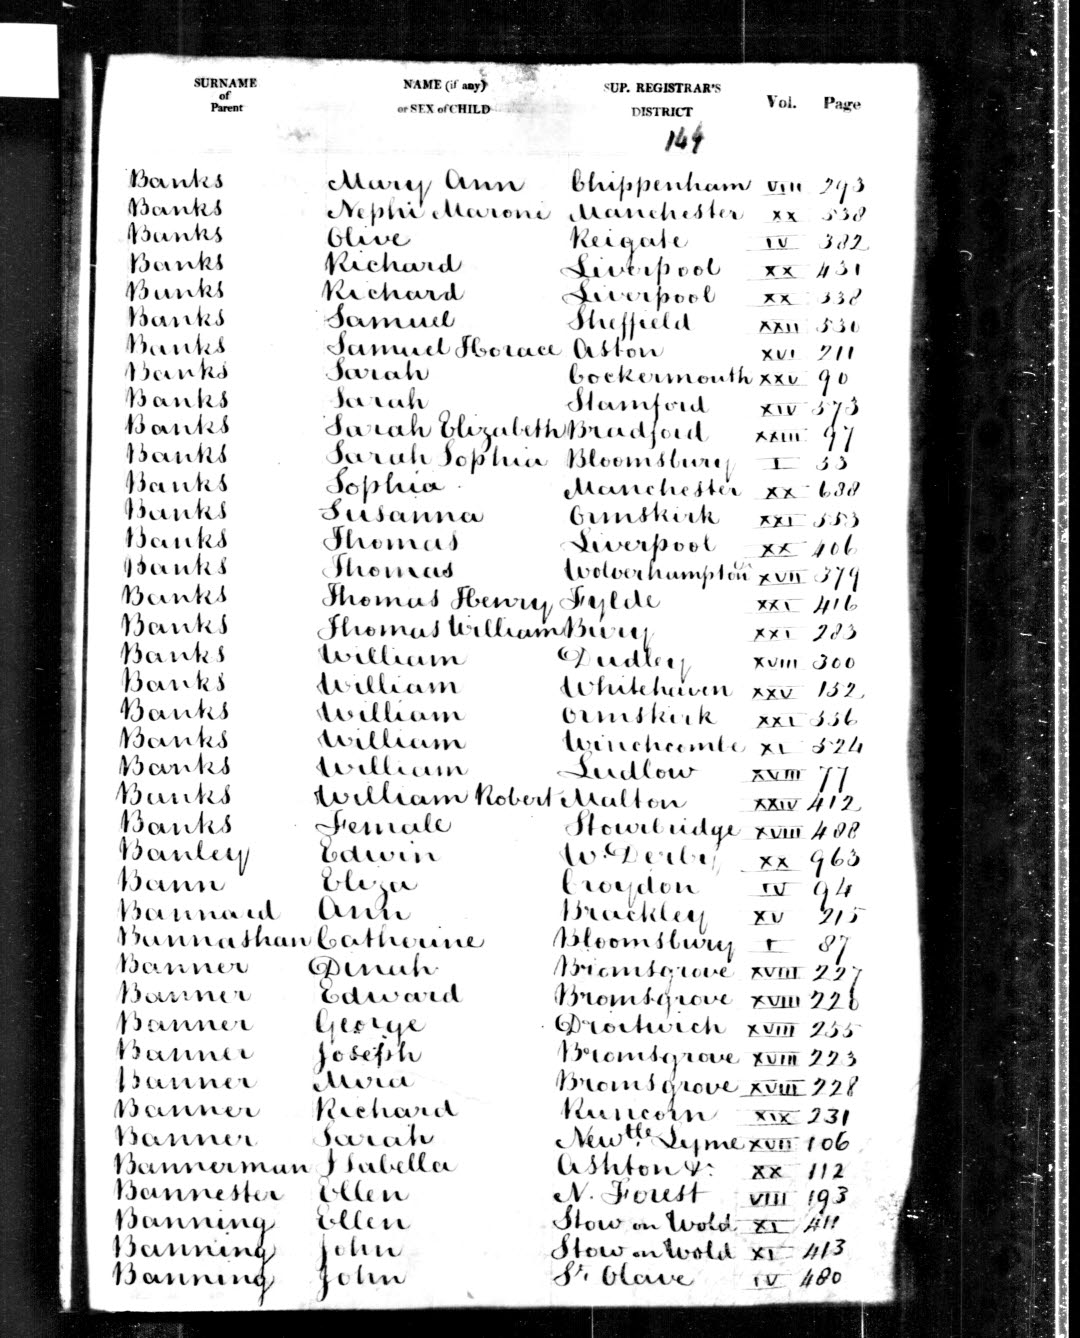 SURNAME of Parent NAME (if any) or SEX of CHILD SUP. REGISTRAR'S DISTRICT Vol. Page
Banks Mary Ann Chippenham VIII 293
Banks Nephi Maroni Manchester XX 538
Banks Olive Reigate IV 382
Banks Richard Liverpool XX 431
Banks Richard Liverpool XX 338
Banks Samuel Sheffield XXII 530
Banks Samuel Horace Aston XVI 211
Banks Sarah Cockermouth XXV 90
Banks Sarah Stamford XIV 573
Banks Sarah Elizabeth Bradford XXIII 97
Banks Sarah Sophia Bloomsbury I 53
Banks Sophia Manchester XX 638
Banks Susanna Ormskirk XXI 553
Banks Thomas Liverpool XX 406
Banks Thomas Wolverhampton XVII 379
Banks Thomas Henry Fylde XXI 416
Banks Thomas William Bury XXI 283
Banks William Dudley XVIII 300
Banks William Whitehaven XXV 152
Banks William Ormskirk XXI 556
Banks William Winchcombe XI 524
Banks William Ludlow XVIII 77
Banks William Robert Malton XXIV 412
Banks Female Stourbridge XVIII 488
Banley Edwin W. Derby XX 963
Bann Eliza Croydon IV 94
Bannard Ann Brackley XV 215
Bannathan Catherine Bloomsbury I 87
Banner Dinah Bromsgrove XVIII 227
Banner Edward Bromsgrove XVIII 226
Banner George Droitwich XVIII 255
Banner Joseph Bromsgrove XVIII 223
Banner Mira Bromsgrove XVIII 228
Banner Richard Runcorn XIX 231
Banner Sarah Newtle Lyme XVII 106
Bannerman Isabella Ashton &c XX 112
Bannester Ellen N. Forest VIII 193
Banning Ellen Stow on Wold XI 411
Banning John Stow on Wold XI 413
Banning John St. Olave IV 480